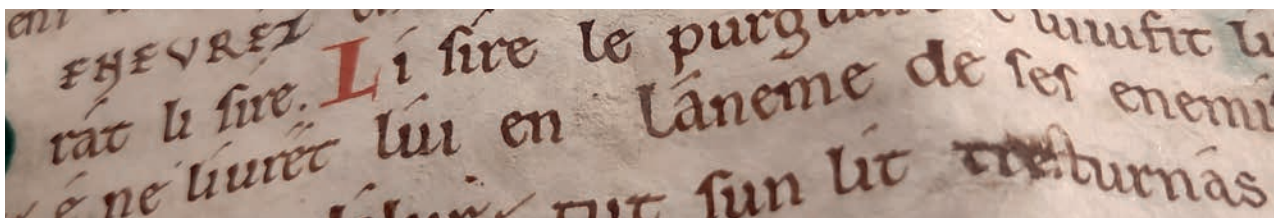 EHEVREZ
rát li ſire. Li ſire le purg uiuifit lu
é ne liurét lui en láneme de ſeſ enemiſ
tut ſun lit treſturnás